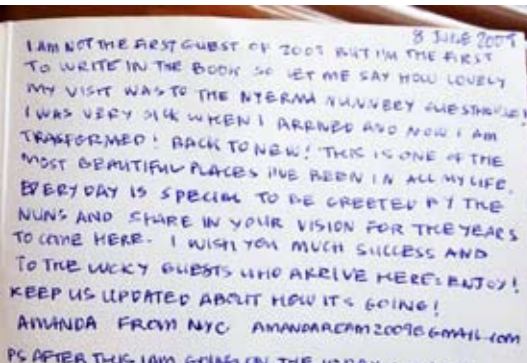 8 JUNE 2009
I AM NOT THE FIRST GUEST OF 2009 BUT I'M THE FIRST
TO WRITE IN THE BOOK SO LET ME SAY HOW LOVELY
MY VISIT WAS TO THE NYERMA NUNNERY GUESTHOUSE!
I WAS VERY SICK WHEN I ARRIVED AND NOW I AM
TRASFORMED! BACK TO NEW! THIS IS ONE OF THE
MOST BEAUTIFUL PLACES I'VE BEEN IN ALL MY LIFE.
EVERYDAY IS SPECIAL TO BE GREETED BY THE
NUNS AND SHARE IN YOUR VISION FOR THE YEARS
TO COME HERE. I WISH YOU MUCH SUCCESS AND
TO THE LUCKY GUESTS WHO ARRIVE HERE: ENJOY!
KEEP US UPDATED ABOUT HOW IT'S GOING!
AMANDA FROM NYC
PS AFTER THIS I AM GOING ON THE